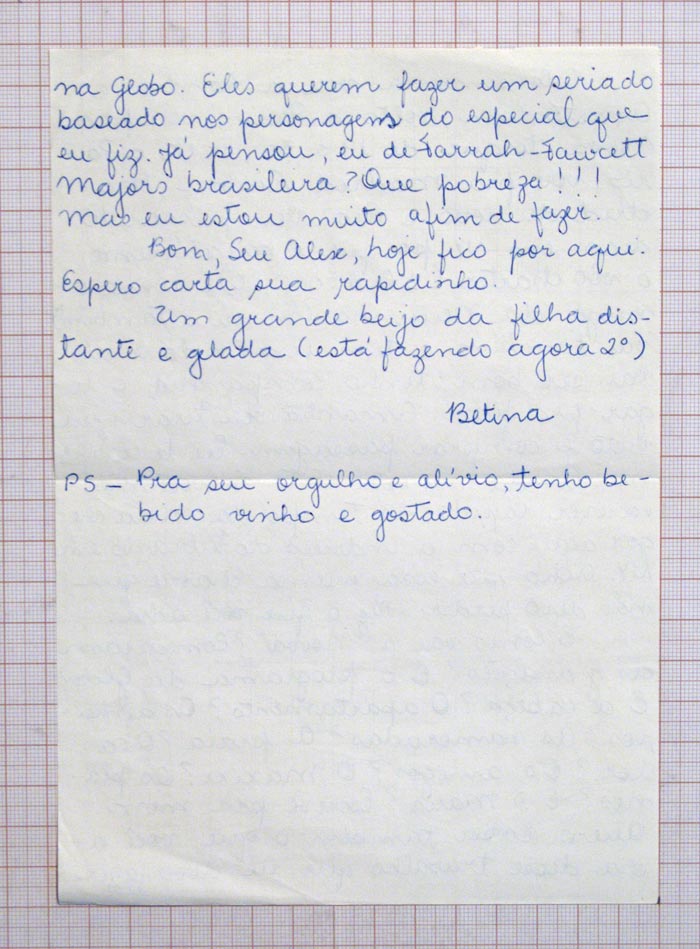 na Globo. Eles querem fazer um seriado
baseado nos personagens do especial que
eu fiz. Já pensou, eu de Farrah-Fawcett
Majors brasileira? Que pobreza!!!
mas eu estou muito afim de fazer.
Bom, Seu Alex, hoje fico por aqui.
Espero carta sua rapidinho.
Um grande beijo da filha dis-
tante e gelada (está fazendo agora 2º)
Betina
PS - Pra seu orgulho e alívio, tenho be-
bido vinho e gostado.